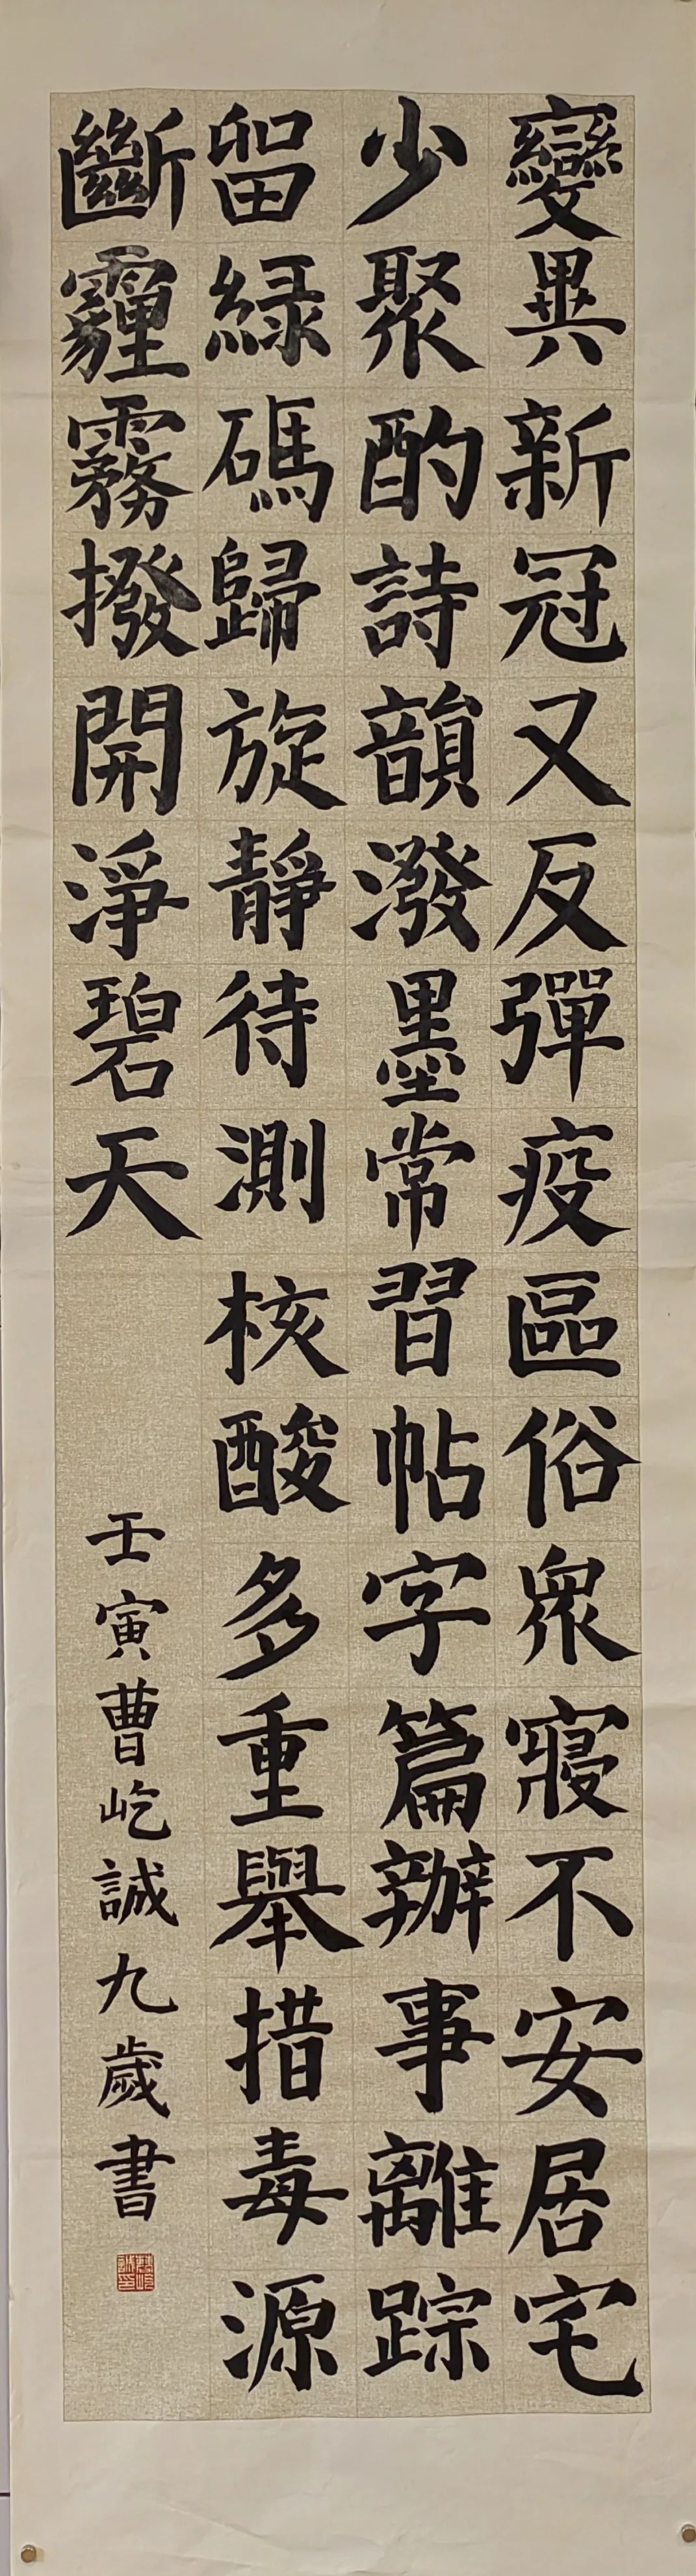 變異新冠又反彈疫區俗衆寢不安居宅
少聚酌詩韻潑墨常習帖字篇辦事離踪
留綠碼歸旋靜待測核酸多重舉措毒源
斷霾霧撥開淨碧天
壬寅曹屹誠九歲書